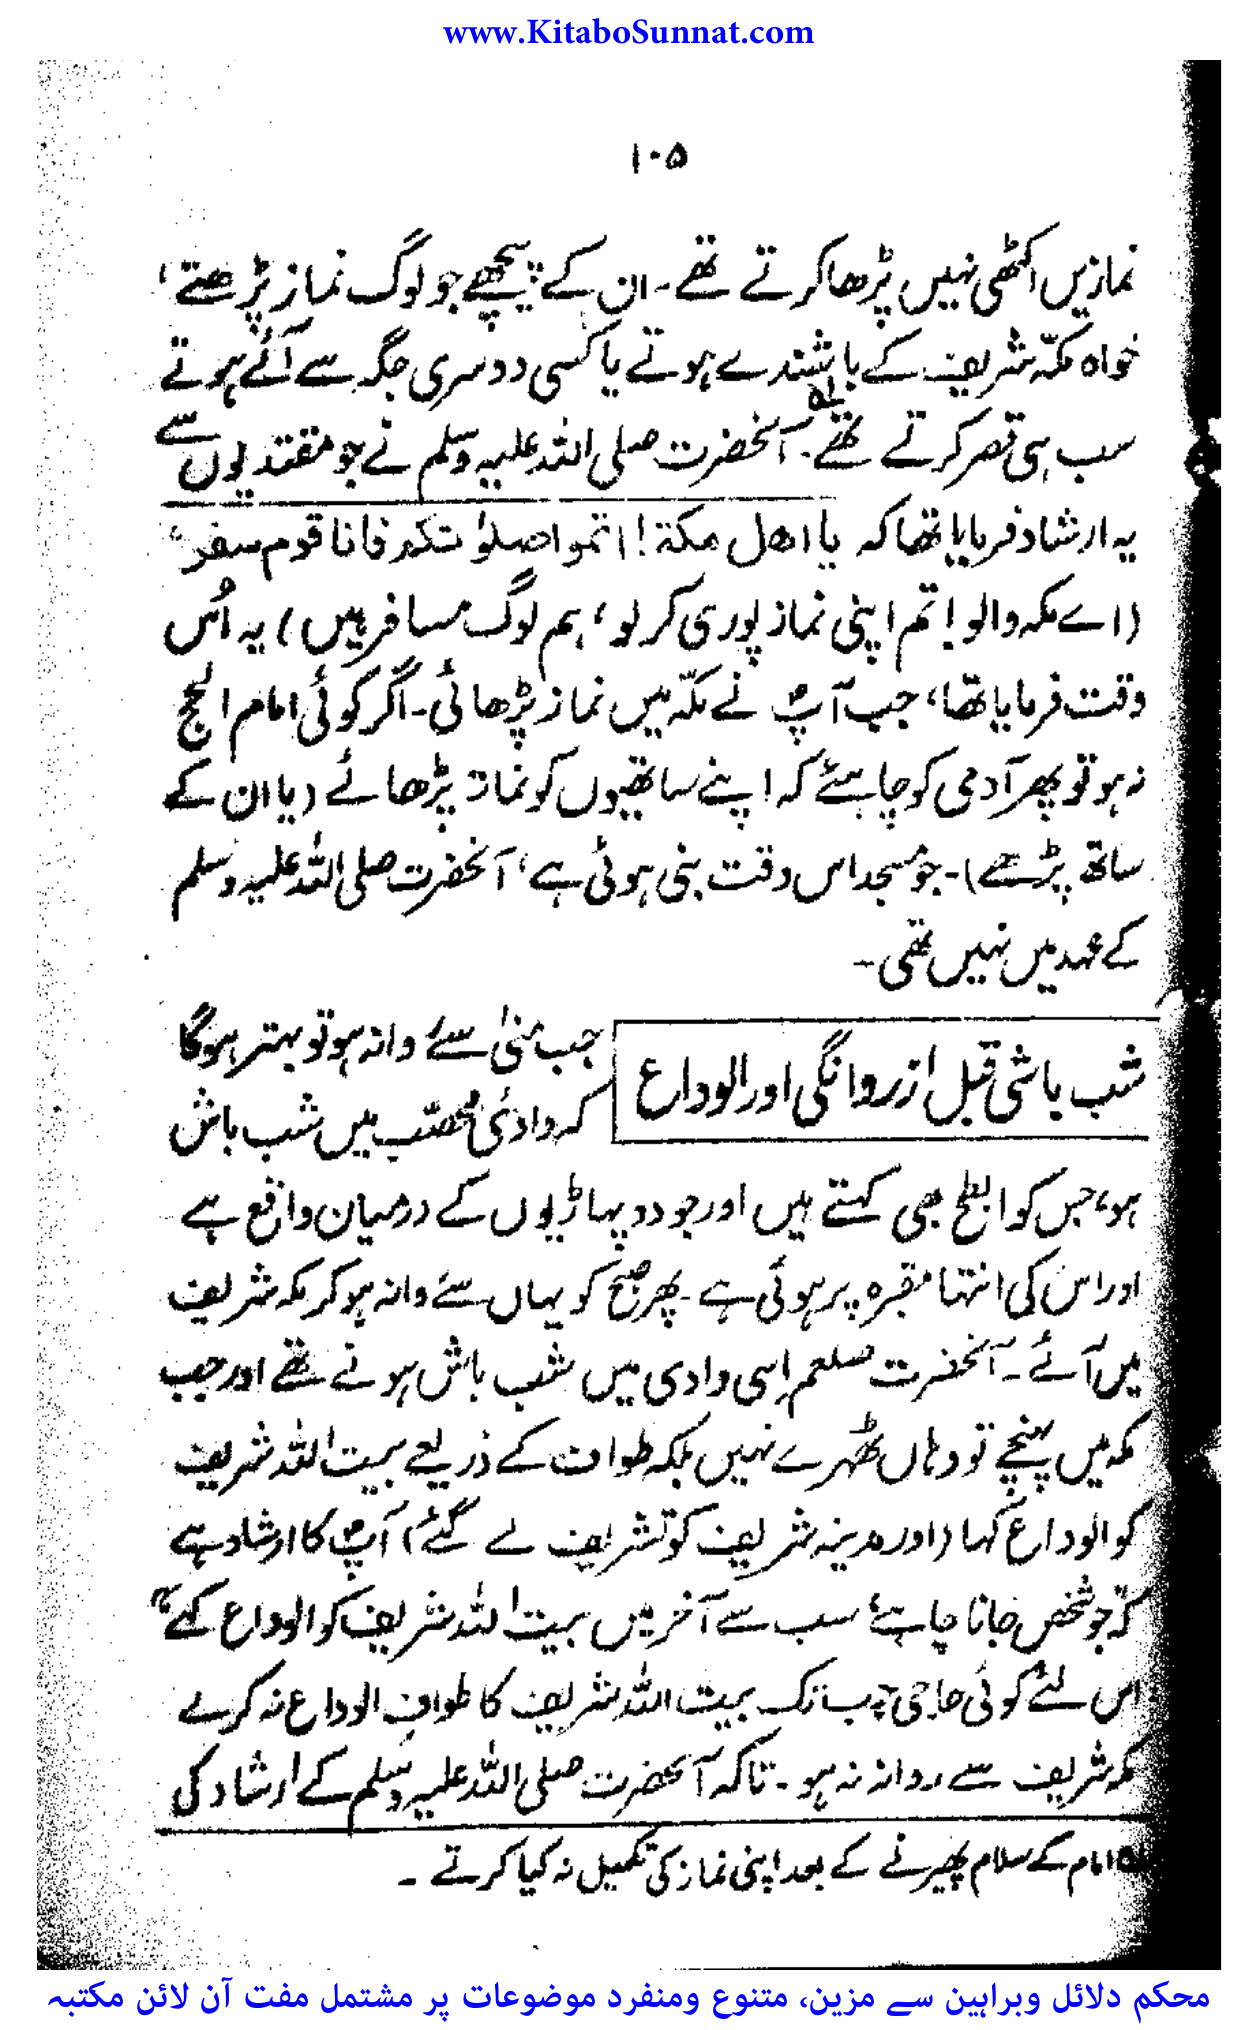 www.KitaboSunnat.com
۱۰۵
نمازیں اکٹھی نہیں پڑھا کرتے تھے۔ ان کے پیچھے جو لوگ نماز پڑھتے،
خواہ مکّہ شریف کے باشندے ہوتے یا کسی دوسری جگہ سے آئے ہوتے
سب ہی قصر کرتے تھے۔ آنحضرت صلی اللہ علیہ وسلم نے جو مقتدیوں سے
یہ ارشاد فرمایا تھا کہ یا اھل مکۃ! اتموا صلوٰتکم فانا قوم سفر،
(اے مکہ والو! تم اپنی نماز پوری کر لو، ہم لوگ مسافر ہیں) یہ اُس
وقت فرمایا تھا، جب آپؐ نے مکّہ میں نماز پڑھائی۔ اگر کوئی امام الحج
نہ ہو تو پھر آدمی کو چاہئے کہ اپنے ساتھیوں کو نماز پڑھائے (یا ان کے
ساتھ پڑھے)۔ جو مسجد اس وقت بنی ہوئی ہے، آنحضرت صلی اللہ علیہ وسلم
کے عہد میں نہیں تھی۔
شب باشی قبل از روانگی اور الوداع
جب منیٰ سے روانہ ہو تو بہتر ہوگا
کہ وادئی محصّب میں شب باش
ہو، جس کو ابطح بھی کہتے ہیں اور جو دو پہاڑیوں کے درمیان واقع ہے
اور اس کی انتہا مقبرہ پر ہوئی ہے۔ پھر صبح کو یہاں سے روانہ ہو کر مکہ شریف
میں آئے۔ آنحضرت صلعم اِسی وادی میں شب باش ہوئے تھے اور جب
مکہ میں پہنچے تو وہاں ٹھہرے نہیں بلکہ طواف کے ذریعے بیت اللہ شریف
کو الوداع کہا (اور مدینہ شریف کو تشریف لے گئے) آپؐ کا ارشاد ہے
کہ جو شخص جانا چاہے سب سے آخر میں بیت اللہ شریف کو الوداع کہے"
اس لئے کوئی حاجی جب تک بیت اللہ شریف کا طواف الوداع نہ کرے
مکہ شریف سے روانہ نہ ہو۔ تاکہ آنحضرت صلی اللہ علیہ وسلم کے ارشاد کی
لہ امام کے سلام پھیرنے کے بعد اپنی نماز کی تکمیل نہ کیا کرتے۔
محکم دلائل وبراہین سے مزین، متنوع ومنفرد موضوعات پر مشتمل مفت آن لائن مکتبہ